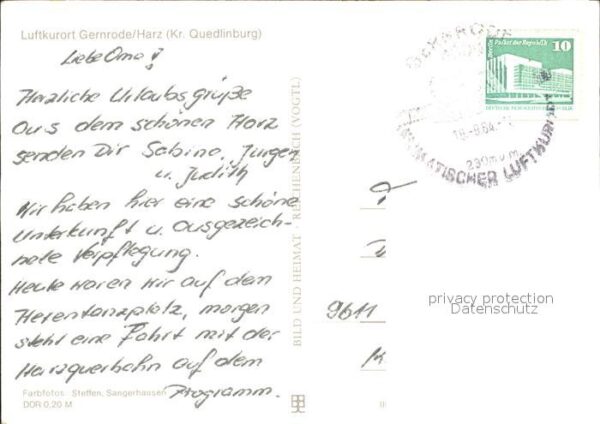 Luftkurort Gernrode/Harz (Kr. Quedlinburg)
Liebe Oma!
Herzliche Urlaubsgrüße
aus dem schönen Harz
senden Dir Sabine, Jürgen
u. Judith
Wir haben hier eine schöne
Unterkunft u. ausgezeich-
nete Verpflegung.
Heute waren wir auf dem
Hexentanzplatz, morgen
steht eine Fahrt mit der
Harzquerbahn auf dem
Programm.
Farbfotos: Steffen, Sangerhausen
DDR 0,20 M
BILD UND HEIMAT · REICHENBACH (VOGTL)
GERNRODE
230m ü. M.
KLIMATISCHER LUFTKURORT
Berlin, Palast der Republik
10
DEUTSCHE DEMOKRATISCHE REPUBLIK
9611
privacy protection
Datenschutz